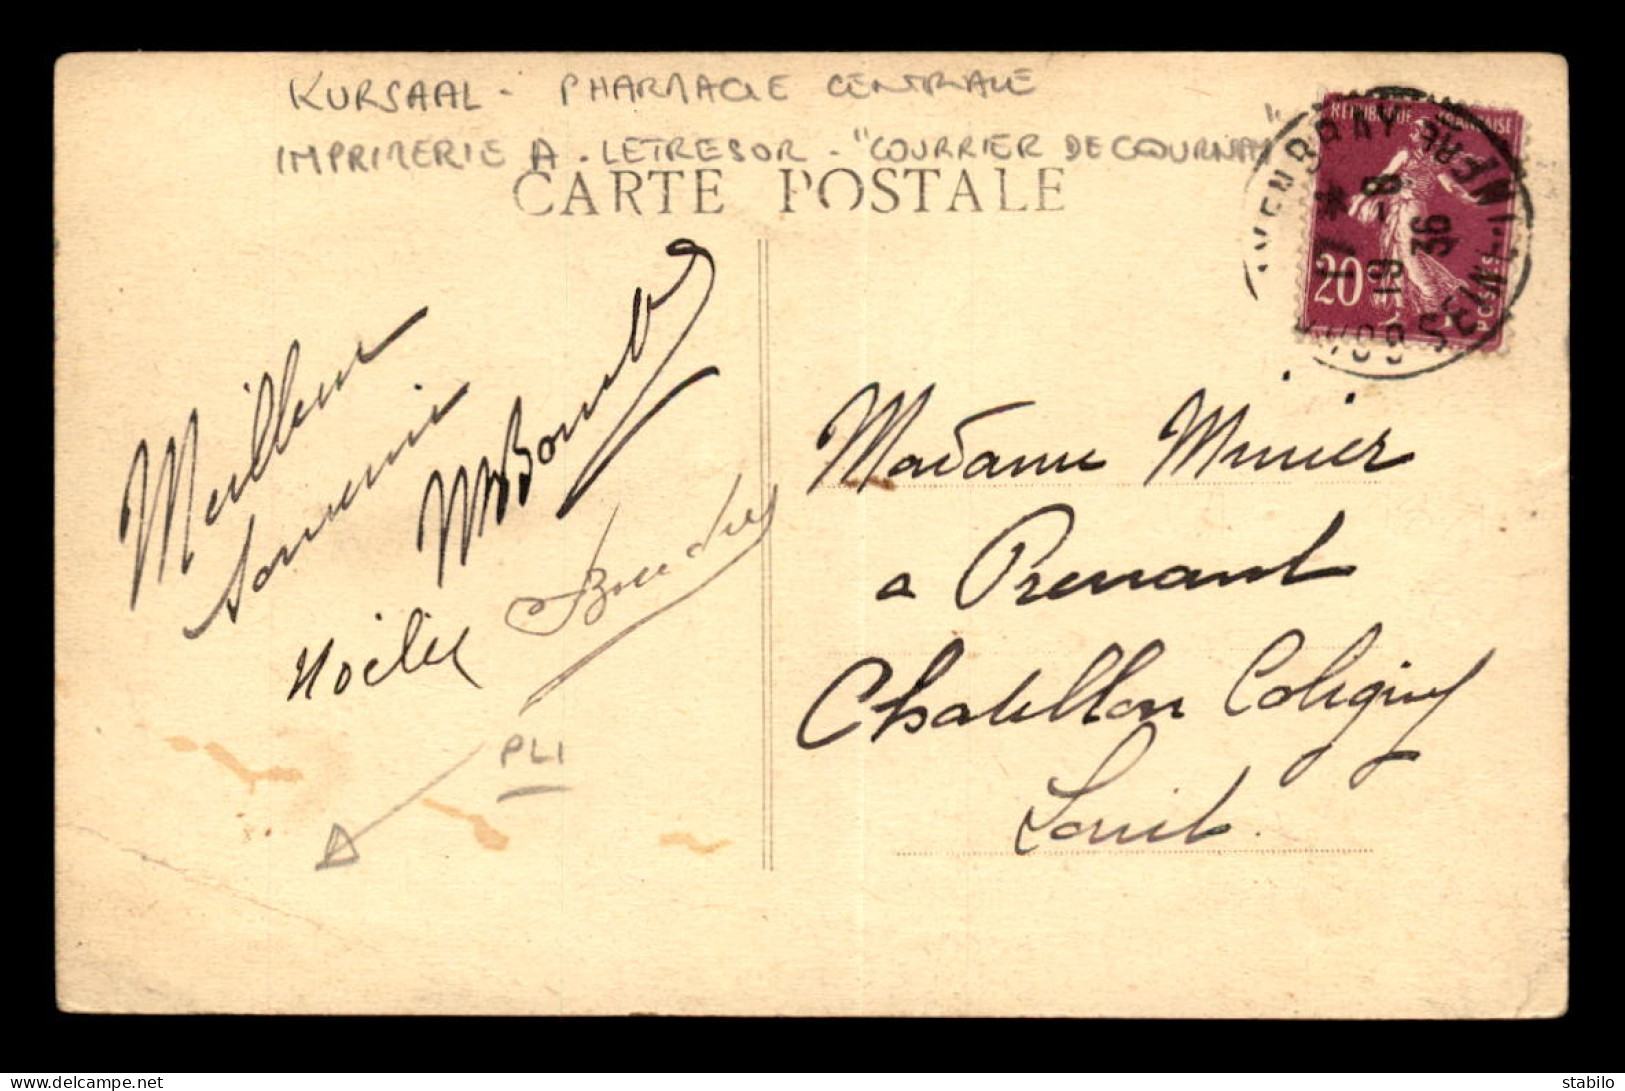 KURSAAL - PHARMACIE CENTRALE
IMPRIMERIE A. LETRESOR - "COURRIER DE GOURNAY"
CARTE POSTALE
REPUBLIQUE FRANÇAISE
20c
POSTES
17 - 8
19 36
SEINE INFRE
Meilleur
Souvenir
Noëlie
PLI
Madame Minier
a Prenant
Chatillon Coligny
Loiret
stabilo